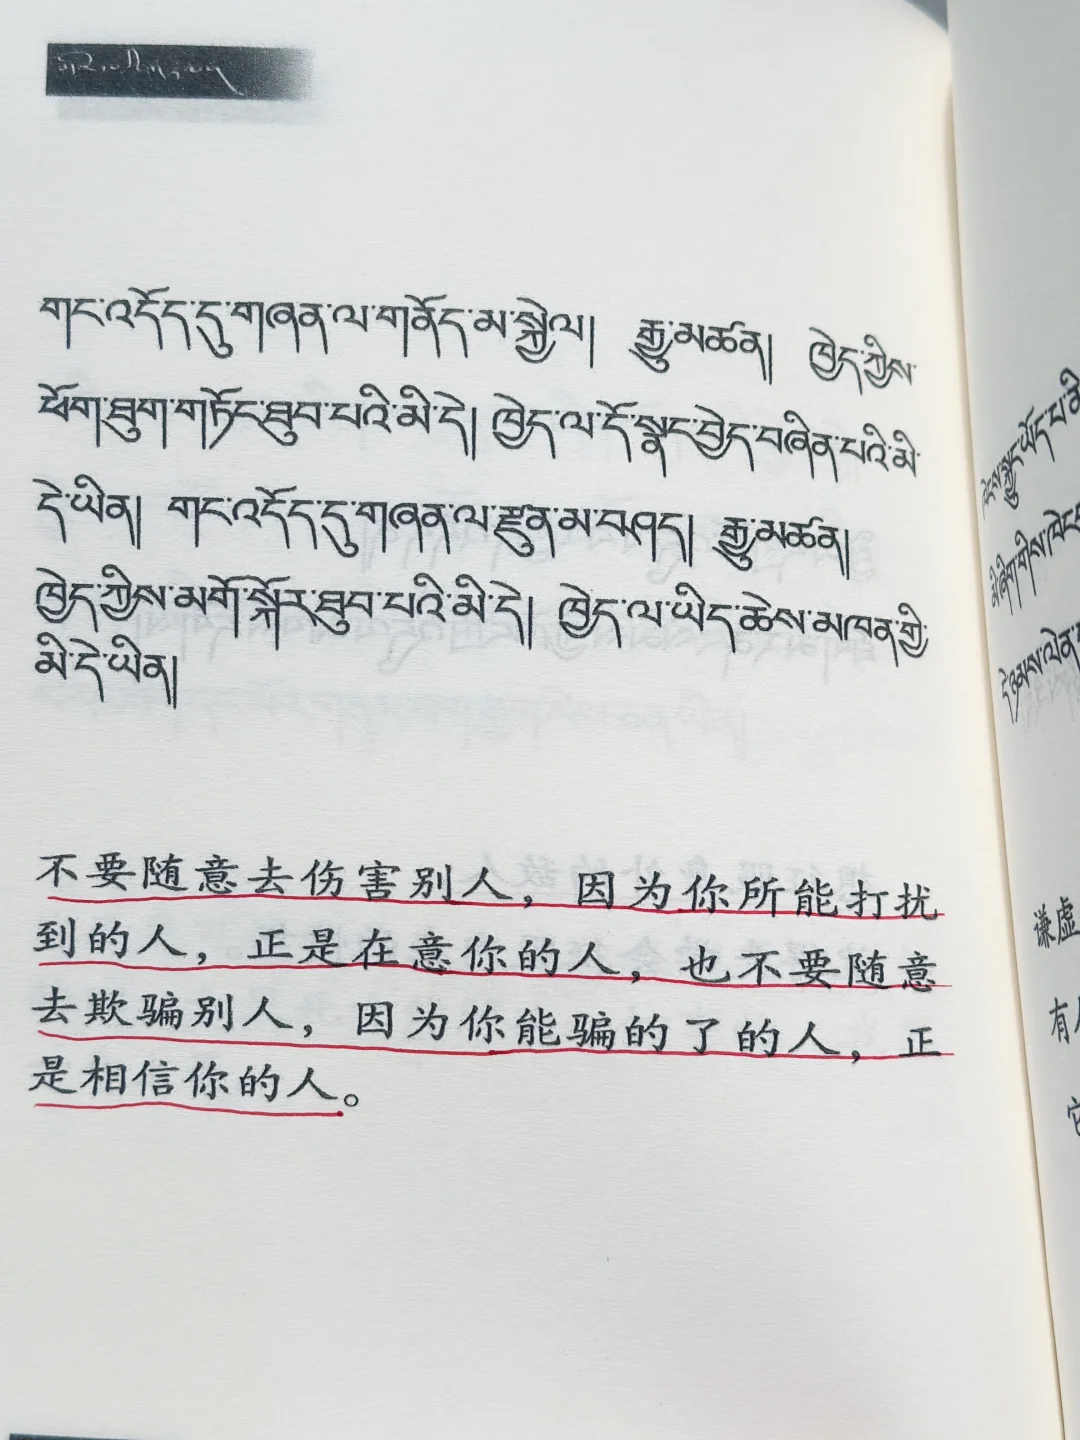 གང་འདོད་དུ་གཞན་ལ་གནོད་མ་སྐྱེལ། རྒྱུ་མཚན། ཁྱེད་ཀྱིས་
ཕོག་ཐུག་གཏོང་ཐུབ་པའི་མི་དེ། ཁྱེད་ལ་དོ་སྣང་བྱེད་བཞིན་པའི་མི་
དེ་ཡིན། གང་འདོད་དུ་གཞན་ལ་རྫུན་མ་བཤད། རྒྱུ་མཚན།
ཁྱེད་ཀྱིས་མགོ་སྐོར་ཐུབ་པའི་མི་དེ། ཁྱེད་ལ་ཡིད་ཆེས་མཁན་གྱི་
མི་དེ་ཡིན།
不要随意去伤害别人，因为你所能打扰
到的人，正是在意你的人，也不要随意
去欺骗别人，因为你能骗的了的人，正
是相信你的人。
谦虚
有